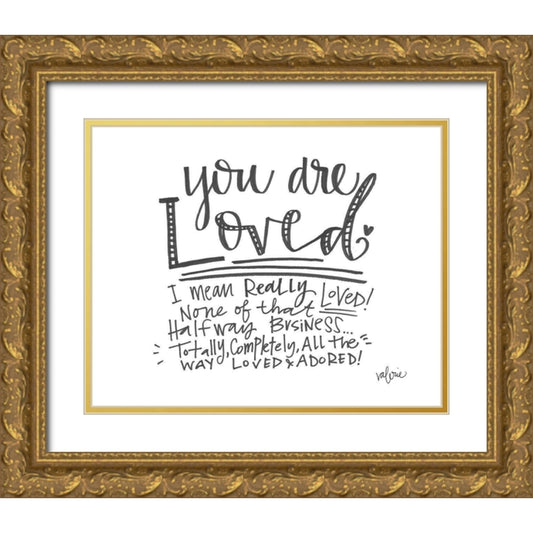 you are
Loved
I mean Really LOVED!
None of that
Halfway Business...
Totally, Completely, All the
WAY LOVED & ADORED!
valerie